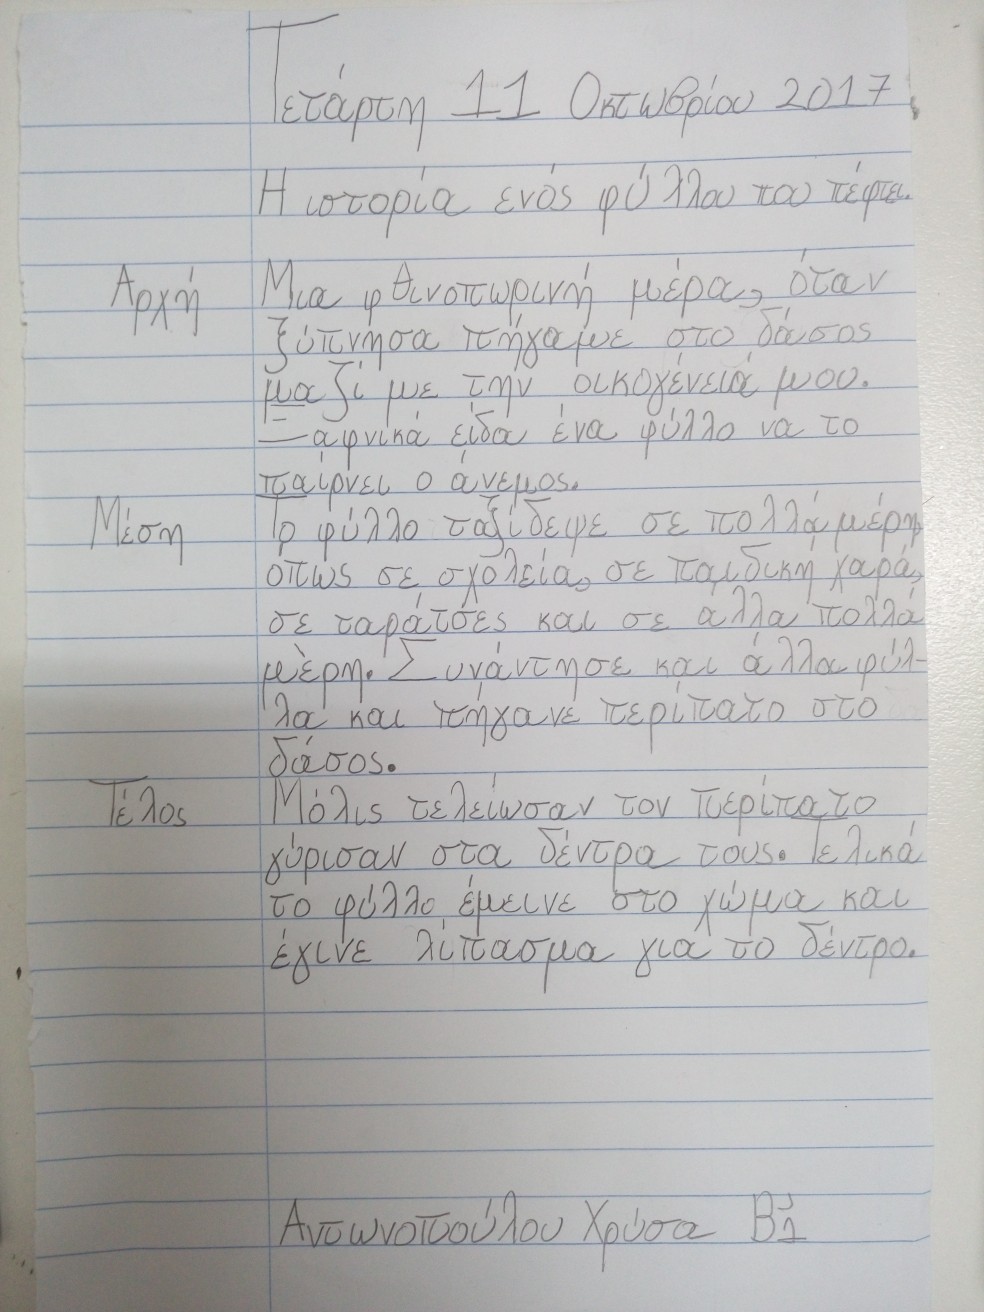 Τετάρτη 11 Οκτωβρίου 2017
Η ιστορία ενός φύλλου που πέφτει.
Αρχή Μια φθινοπωρινή μέρα, όταν
ξύπνησα πήγαμε στο δάσος
μαζί με την οικογένειά μου.
Ξαφνικά είδα ένα φύλλο να το
παίρνει ο άνεμος.
Μέση Το φύλλο ταξίδεψε σε πολλά μέρη,
όπως σε σχολεία, σε παιδική χαρά,
σε ταράτσες και σε άλλα πολλά
μέρη. Συνάντησε και άλλα φύλ-
λα και πήγανε περίπατο στο
δάσος.
Τέλος Μόλις τελείωσαν τον περίπατο
γύρισαν στα δέντρα τους. Τελικά
το φύλλο έμεινε στο χώμα και
έγινε λίπασμα για το δέντρο.
Αντωνοπούλου Χρύσα Β'1